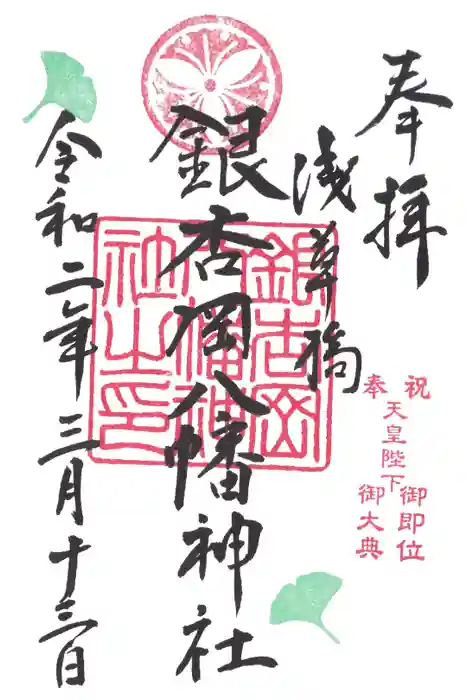 奉拝
浅草橋
銀杏岡八幡神社
令和二年三月十三日
銀杏岡
八幡神
社之印
祝
天皇陛下御即位
奉
御大典